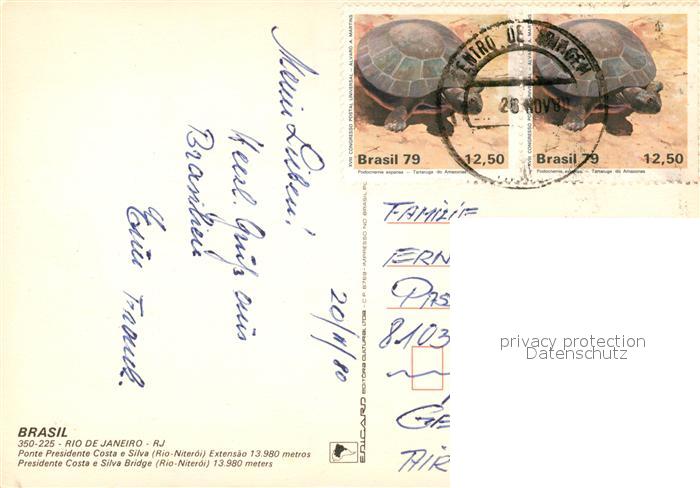 Meine Lieben!
Herzl. Grüße aus
Brasilien
Euer Franck.
20/11/80
XVIII CONGRESSO POSTAL UNIVERSAL - ALVARO A. MARTINS
Brasil 79 12,50
Podocnemis expansa — Tartaruga do Amazonas
XVIII CONGRESSO POSTAL UNIVERSAL - ALVARO A. MARTINS
Brasil 79 12,50
Podocnemis expansa — Tartaruga do Amazonas
CENTRO DE TRIAGEM
26 NOV 80
FAMILIE
ERN
PAS
8103
GE
AIR
privacy protection
Datenschutz
EDICARD EDITORA CULTURAL LTDA - C.P. 6769 - IMPRESSO NO BRASIL
BRASIL
350-225 - RIO DE JANEIRO - RJ
Ponte Presidente Costa e Silva (Rio-Niterói) Extensão 13.980 metros
Presidente Costa e Silva Bridge (Rio-Niterói) 13.980 meters